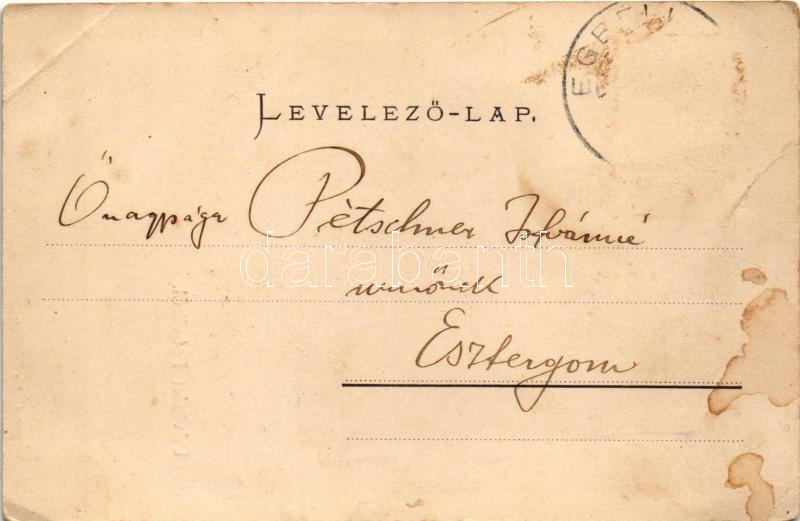 EGBELL
LEVELEZŐ-LAP.
Őnagysága Pétschner Istvánné
urnőnek
Esztergom
darabanth